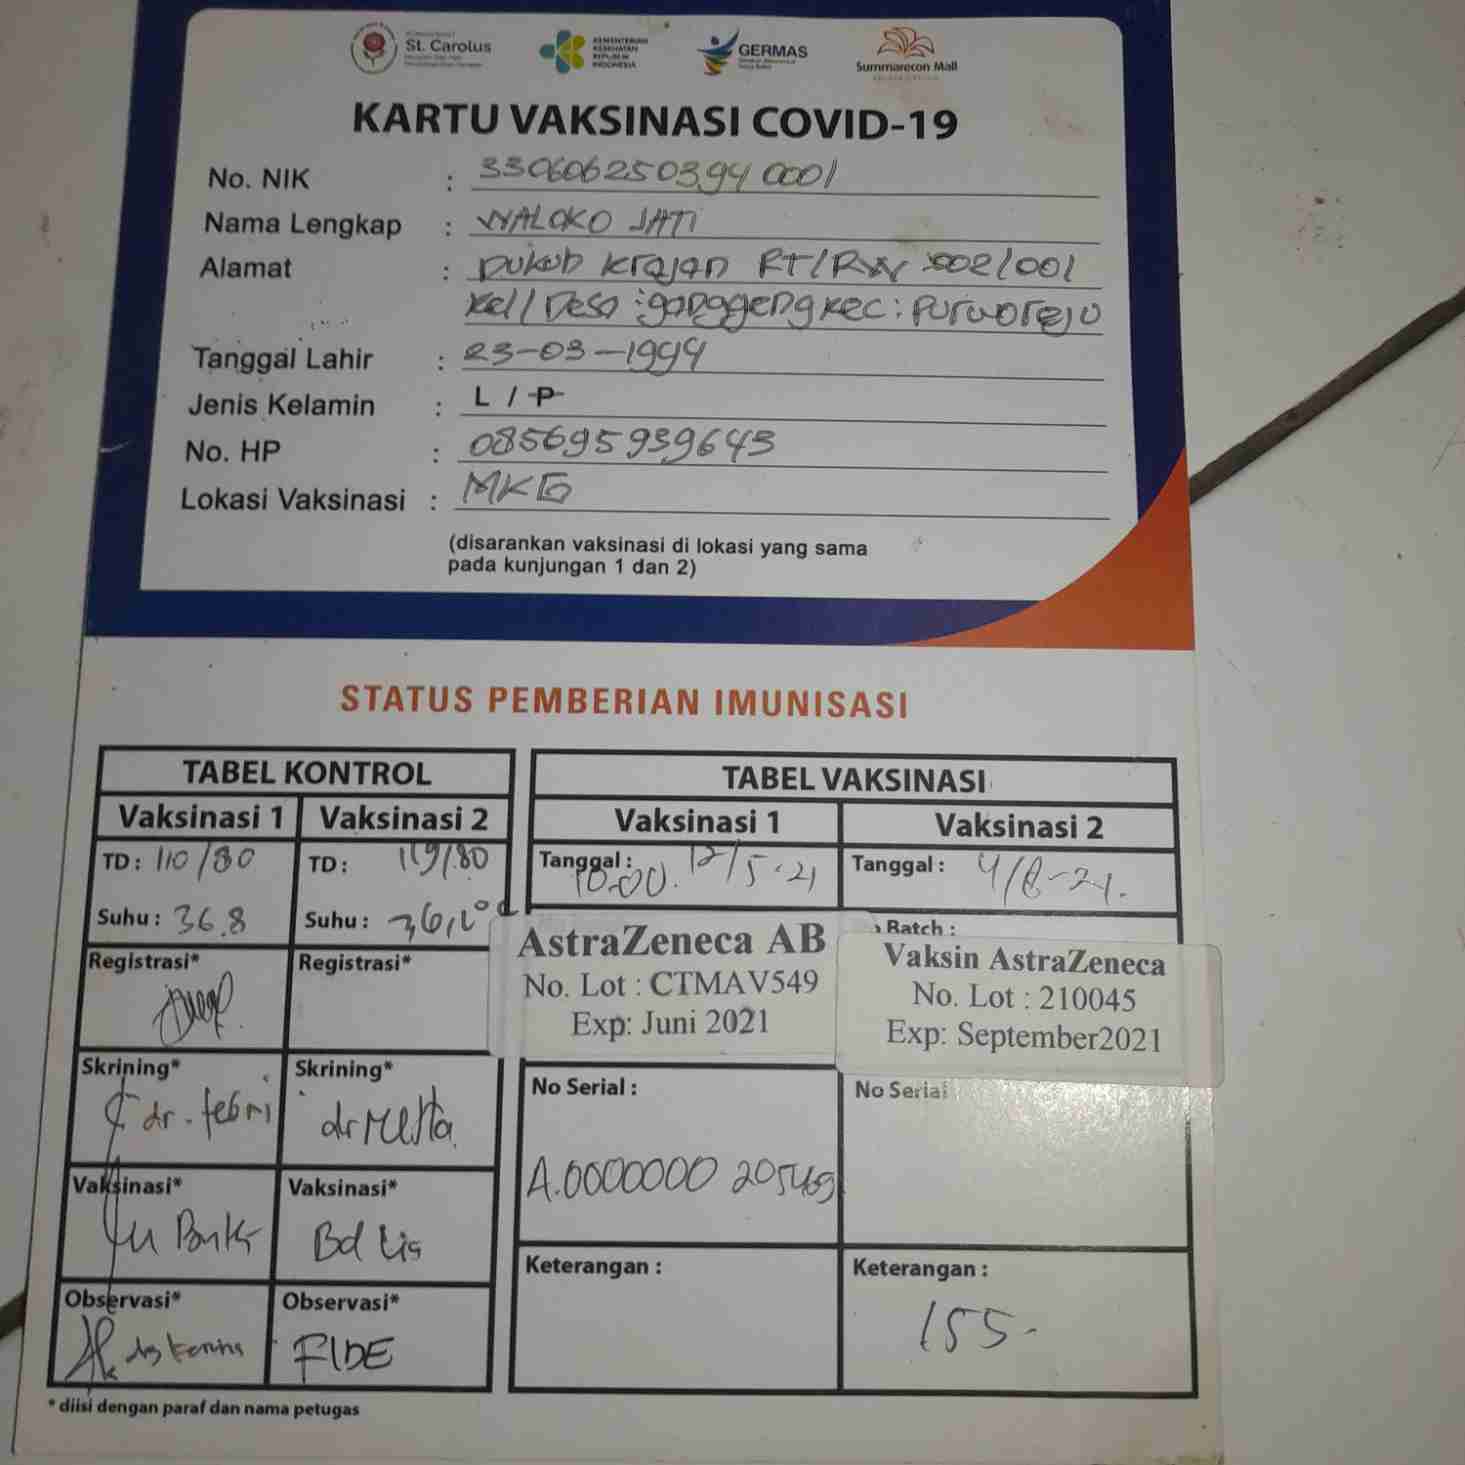 St. Carolus
KEMENTERIAN KESEHATAN REPUBLIK INDONESIA
GERMAS
Summarecon Mall
KARTU VAKSINASI COVID-19
No. NIK : 3306062503940001
Nama Lengkap : WALOKO JATI
Alamat : Dukuh Krajan RT/RW 002/001
Kel/Desa : ganggeng kec: purworejo
Tanggal Lahir : 23-03-1994
Jenis Kelamin : L / P
No. HP : 085695939643
Lokasi Vaksinasi : MKG
(disarankan vaksinasi di lokasi yang sama
pada kunjungan 1 dan 2)
STATUS PEMBERIAN IMUNISASI
TABEL KONTROL
Vaksinasi 1 Vaksinasi 2
TD : 110/80 TD : 119/80
Suhu : 36.8 Suhu :
Registrasi* Registrasi*
Skrining* Skrining*
dr. febri dr Melta
Vaksinasi* Vaksinasi*
Bd Lis
Observasi* Observasi*
FIDE
* diisi dengan paraf dan nama petugas
TABEL VAKSINASI
Vaksinasi 1 Vaksinasi 2
Tanggal : 12/5-21 Tanggal : 4/8-21.
10.00.
Batch :
AstraZeneca AB
No. Lot : CTMAV549
Exp: Juni 2021
Vaksin AstraZeneca
No. Lot : 210045
Exp: September2021
No Serial : No Serial
A.0000000 205469
Keterangan : Keterangan :
155-